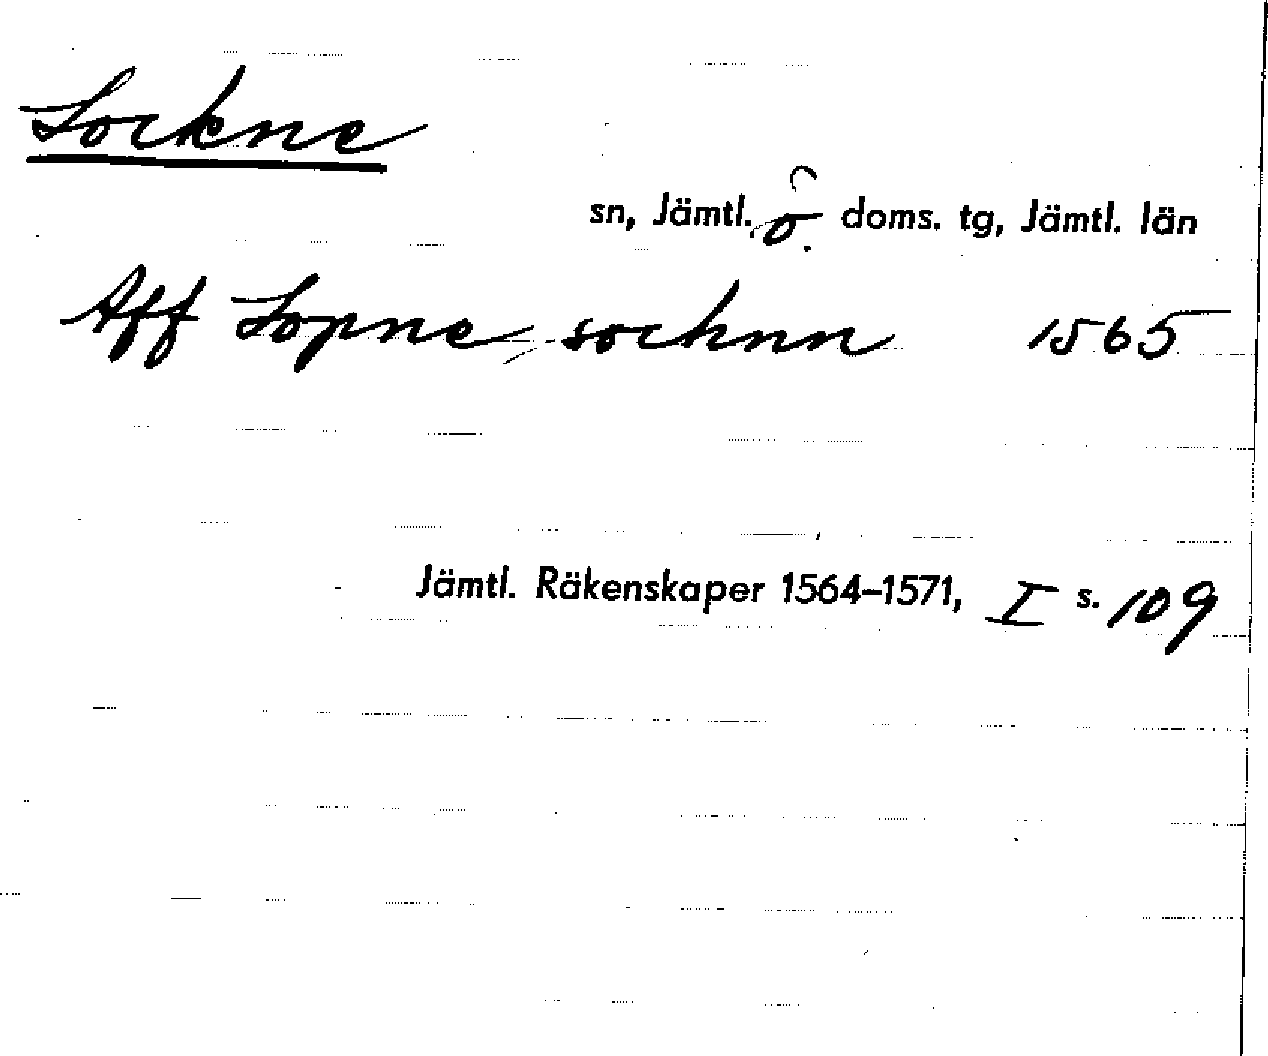 Lockne
sn, Jämtl. ö. doms. tg, Jämtl. län
Aff Lopne sochnn 1565
Jämtl. Räkenskaper 1564–1571, I s. 109